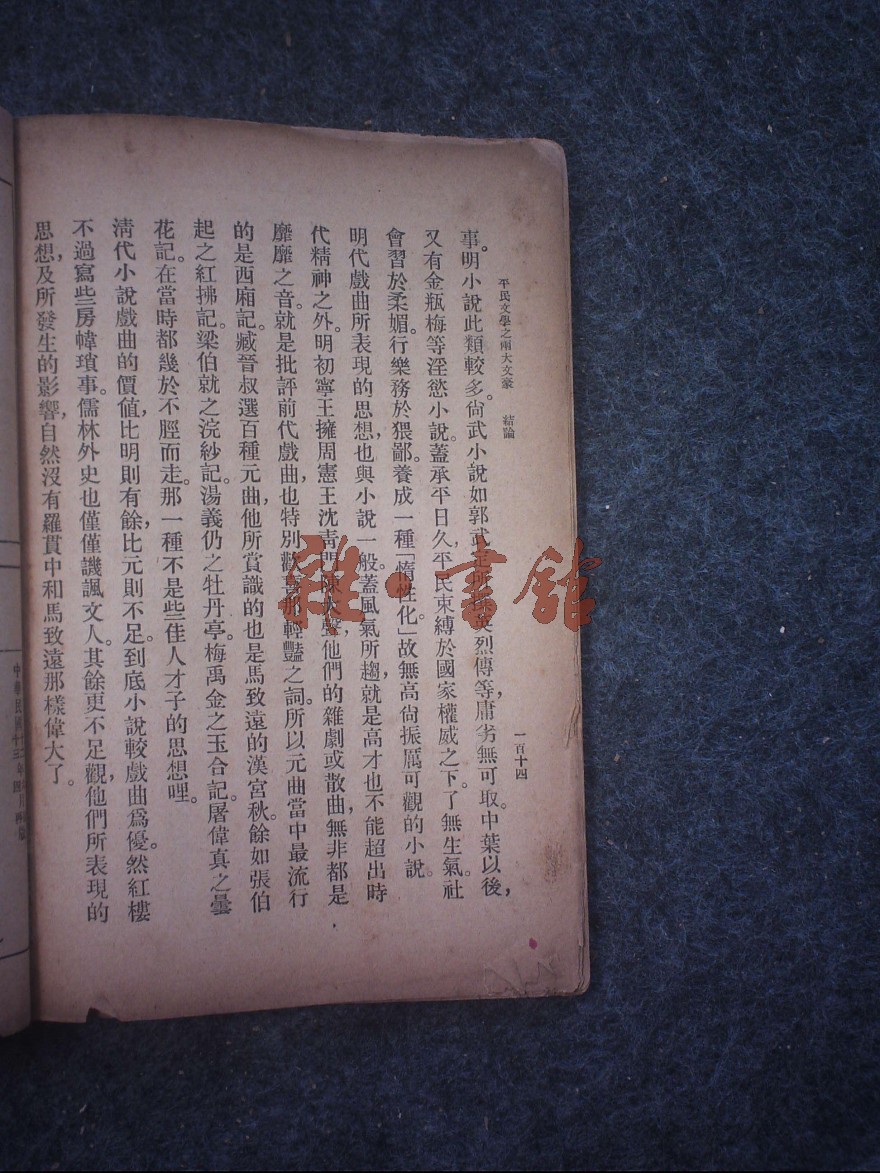 平民文學之兩大文豪 結論 一百十四
事。明小說此類較多。尙武小說如郭武定所探英烈傳等，庸劣無可取。中葉以後，
又有金瓶梅等淫慾小說。蓋承平日久，平民束縛於國家權威之下。了無生氣。社
會習於柔媚。行樂務於猥鄙。養成一種「惰性化」故無高尙振厲可觀的小說。
明代戲曲所表現的思想，也與小說一般。蓋風氣所趨，就是高才也不能超出時
代精神之外。明初寧王擁周憲王沈靑門陳大聲，他們的雜劇或散曲，無非都是
靡靡之音。就是批評前代戲曲，也特別歡喜那輕豔之詞。所以元曲當中最流行
的是西廂記。臧晉叔選百種元曲，他所賞識的也是馬致遠的漢宮秋。餘如張伯
起之紅拂記。梁伯就之浣紗記。湯義仍之牡丹亭。梅禹金之玉合記。屠偉真之曇
花記。在當時都幾於不脛而走。那一種不是些佳人才子的思想哩。
淸代小說戲曲的價値，比明則有餘，比元則不足。到底小說較戲曲爲優。然紅樓
不過寫些房幃瑣事。儒林外史也僅僅譏諷文人。其餘更不足觀，他們所表現的
思想，及所發生的影響，自然沒有羅貫中和馬致遠那樣偉大了。
中華民國十三年四
雜·書館